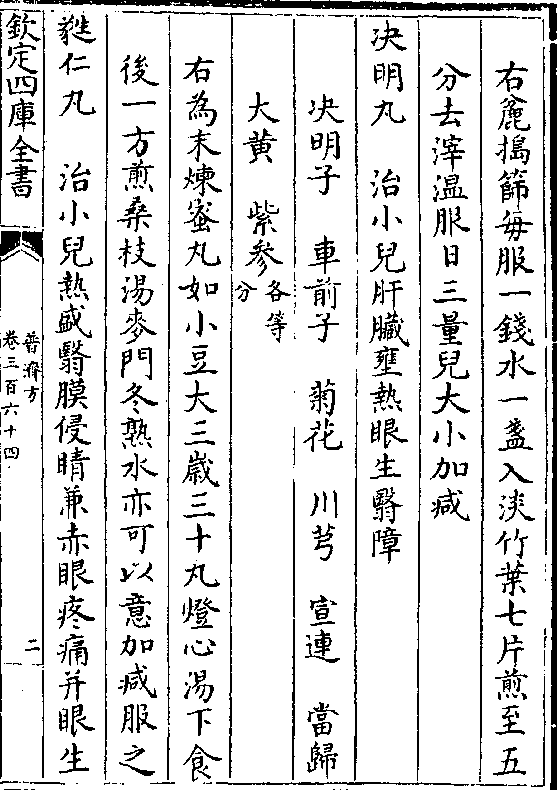 右麄搗篩每服一錢水一盞入淡竹葉七片煎至五
分去滓温服日三量兒大小加減
決明丸 治小兒肝臟壅熱眼生翳障
決明子 車前子 菊花 川芎 宣連 當歸
大黄 紫參各等分
右為末煉蜜丸如小豆大三歲三十丸燈心湯下食
後一方煎桑枝湯麥門冬熟水亦可以意加減服之
蕤仁丸 治小兒熱盛翳膜侵睛兼赤眼疼痛并眼生
欽定四庫全書
普濟方
卷三百六十四
二